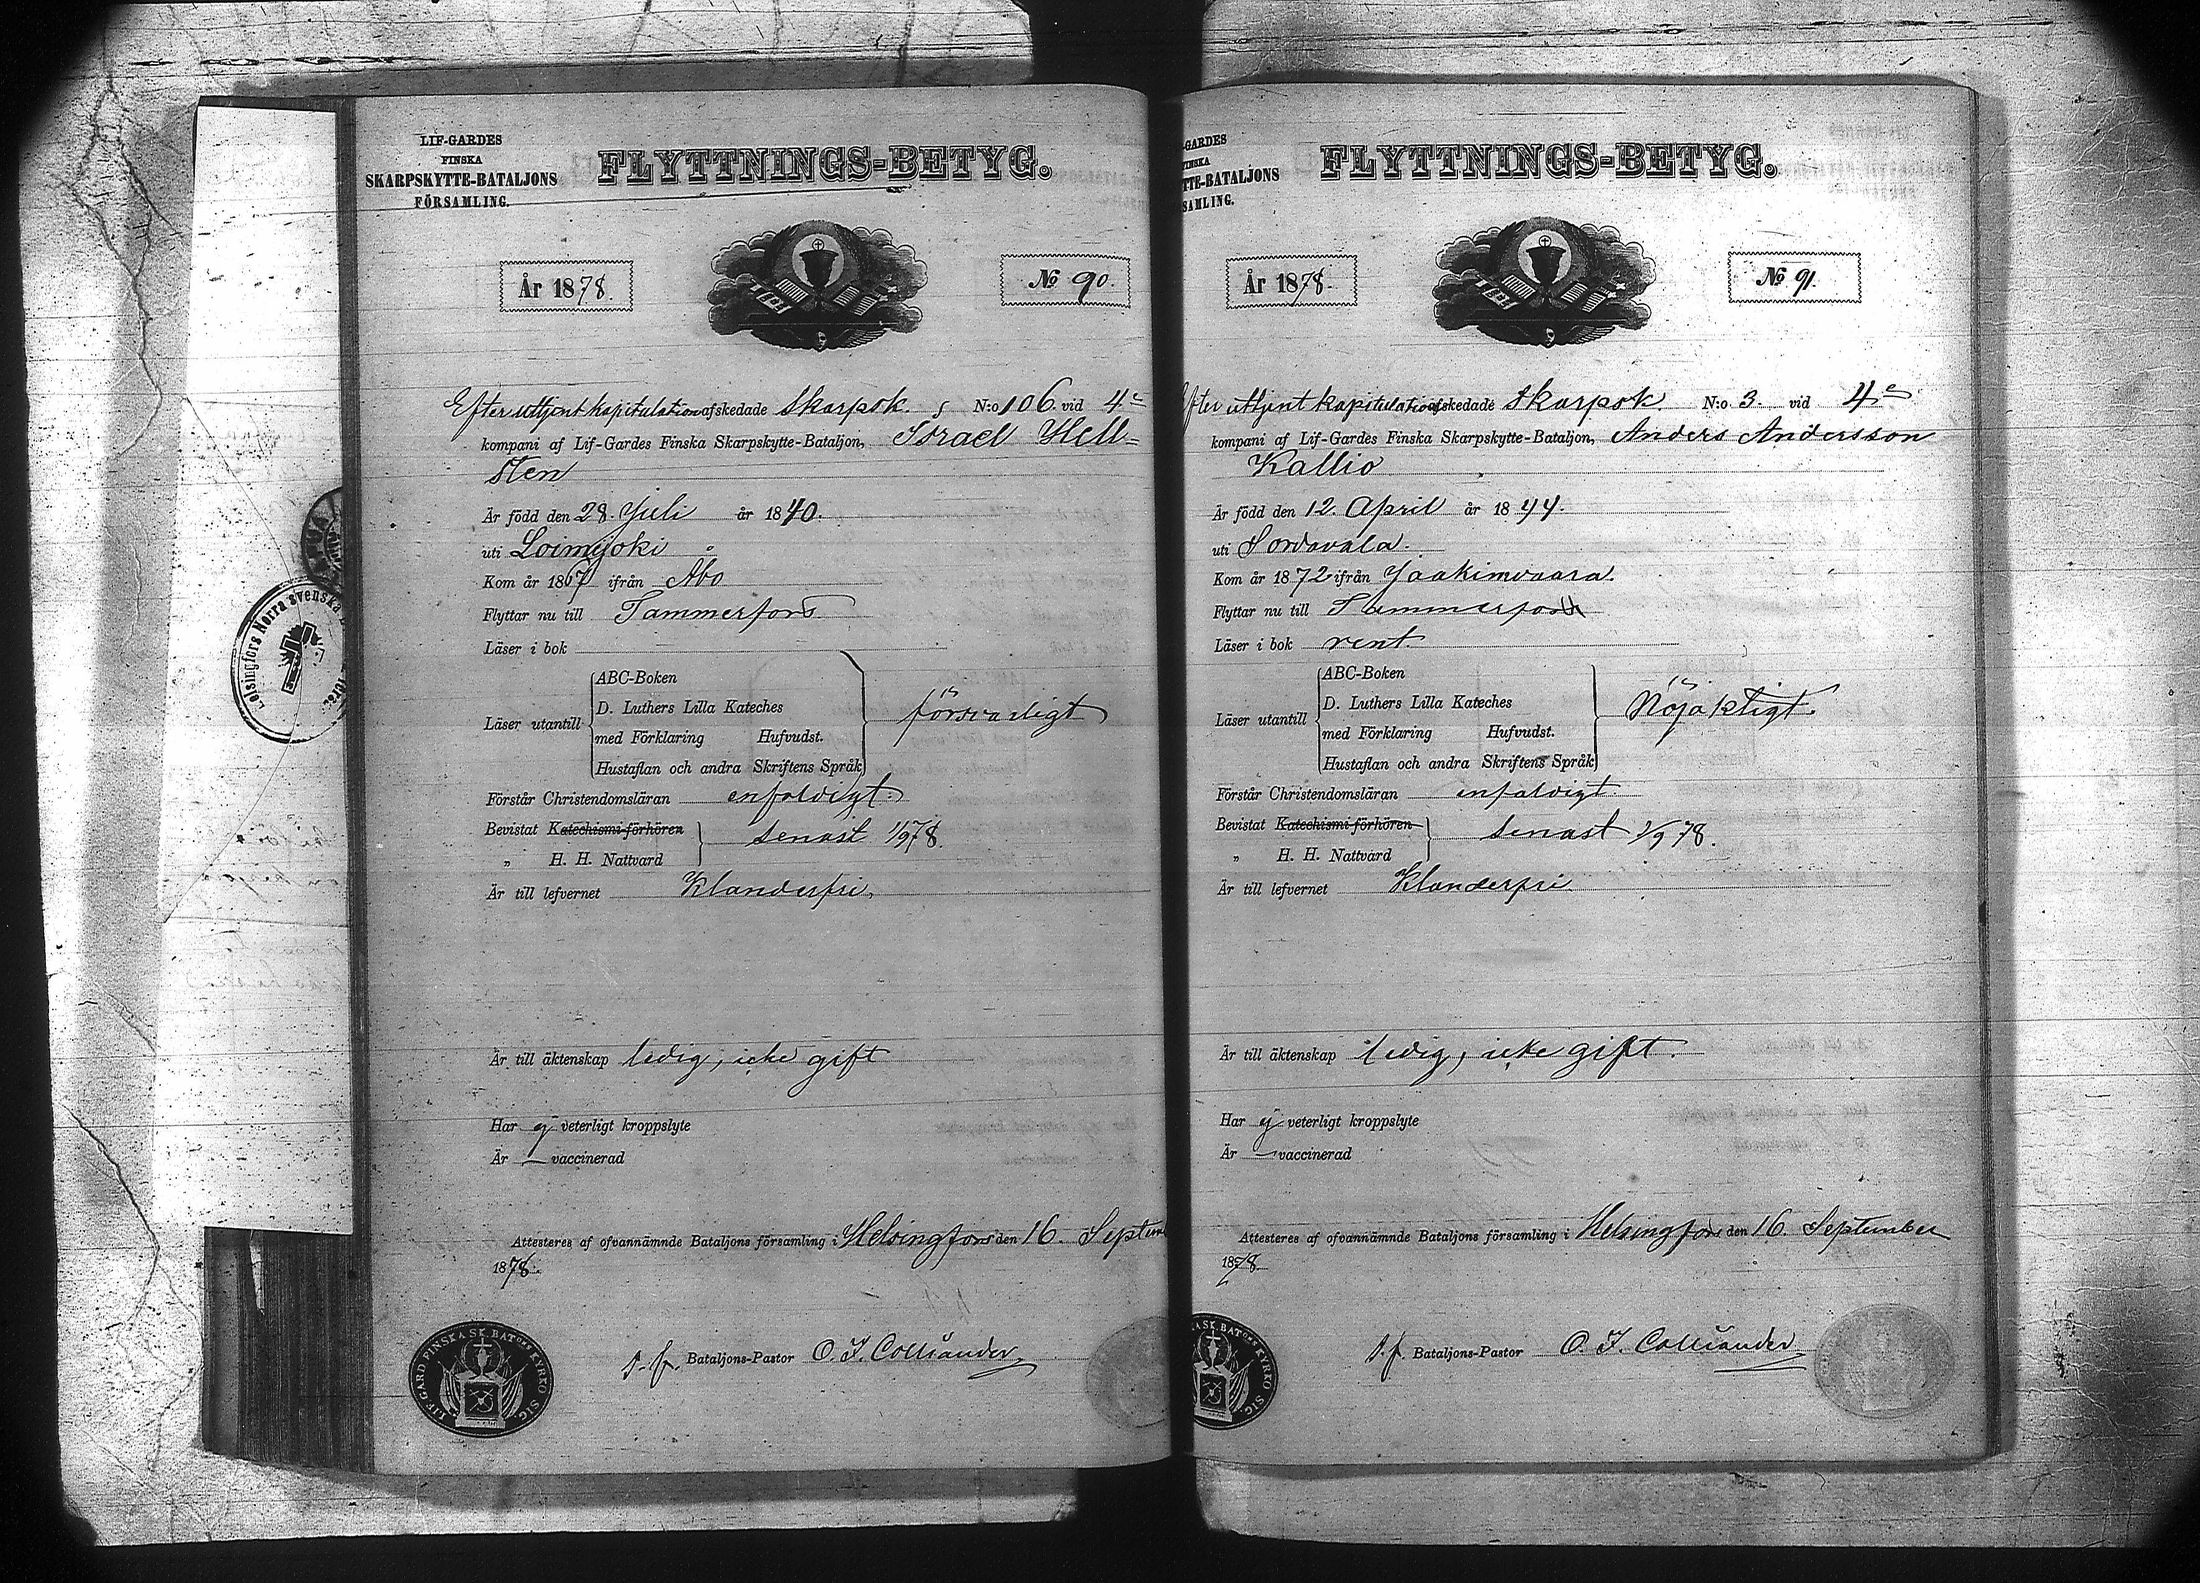 LIF-GARDES
FINSKA
SKARPSKYTTE-BATALJONS
FÖRSAMLING.
FLYTTNINGS-BETYG.
År 1878.
No 90.
Efter uttjent kapitulation afskedade Skarpsk. N:o 106 vid 4e
kompani af Lif-Gardes Finska Skarpskytte-Bataljon, Israel Hell=
sten
Är född den 28. Juli år 1840.
uti Loimijoki
Kom år 1867 ifrån Åbo
Flyttar nu till Tammerfors
Läser i bok
Läser utantill
ABC-Boken
D. Luthers Lilla Kateches
med Förklaring Hufvudst.
Hustaflan och andra Skriftens Språk
försvarligt
Förstår Christendomsläran enfaldigt.
Bevistat Katechismi-förhören
„ H. H. Nattvard
senast 1/9 78.
Är till lefvernet Klanderfri,
Är till äktenskap ledig, icke gift
Har ej veterligt kroppslyte
Är — vaccinerad
Attesteras af ofvannämnde Bataljons församling i Helsingfors den 16. Septem
1878.
s. f. Bataljons-Pastor O. I. Colliander
LIF-GARD FINSKA SK. BATONS KYRKO SIG.
Helsingfors Norra svenska
-GARDES
INSKA
TTE-BATALJONS
SAMLING.
FLYTTNINGS-BETYG.
År 1878.
No 91.
Efter uttjent kapitulation afskedade Skarpsk. N:o 3. vid 4e
kompani af Lif-Gardes Finska Skarpskytte-Bataljon, Anders Andersson
Kallio
Är född den 12. April år 1844.
uti Sordavala.
Kom år 1872 ifrån Jaakimvaara.
Flyttar nu till Tammerfors
Läser i bok rent.
Läser utantill
ABC-Boken
D. Luthers Lilla Kateches
med Förklaring Hufvudst.
Hustaflan och andra Skriftens Språk
Nöjaktigt.
Förstår Christendomsläran enfaldigt
Bevistat Katechismi-förhören
„ H. H. Nattvard
senast 1/9 78.
Är till lefvernet Klanderfri
Är till äktenskap ledig, icke gift.
Har ej veterligt kroppslyte
Är — vaccinerad
Attesteras af ofvannämnde Bataljons församling i Helsingfors den 16. September
1878.
s. f. Bataljons-Pastor O. I. Colliander
A SK. BATONS KYRKO SIG.